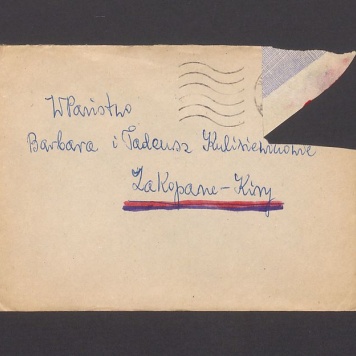 WPaństwo
Barbara i Tadeusz Kulisiewiczowie
Zakopane-Kiry